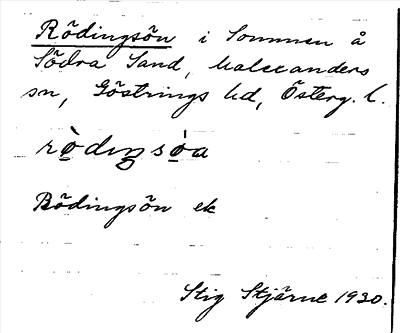 Rödingsön i Sommen å
Södra Sand, Malexanders
sn, Göstrings hd, Österg. l.
rö̀diŋsöa
Rödingsön ek
Stig Stjärne 1930.